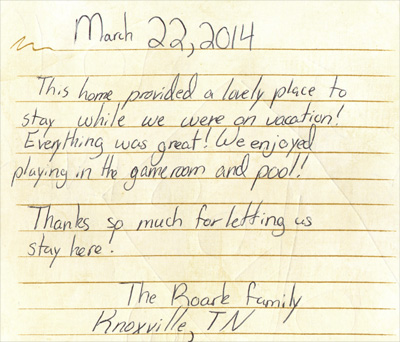 March 22, 2014
This home provided a lovely place to
stay while we were on vacation!
Everything was great! We enjoyed
playing in the gameroom and pool!
Thanks so much for letting us
stay here!
The Roark Family
Knoxville, TN